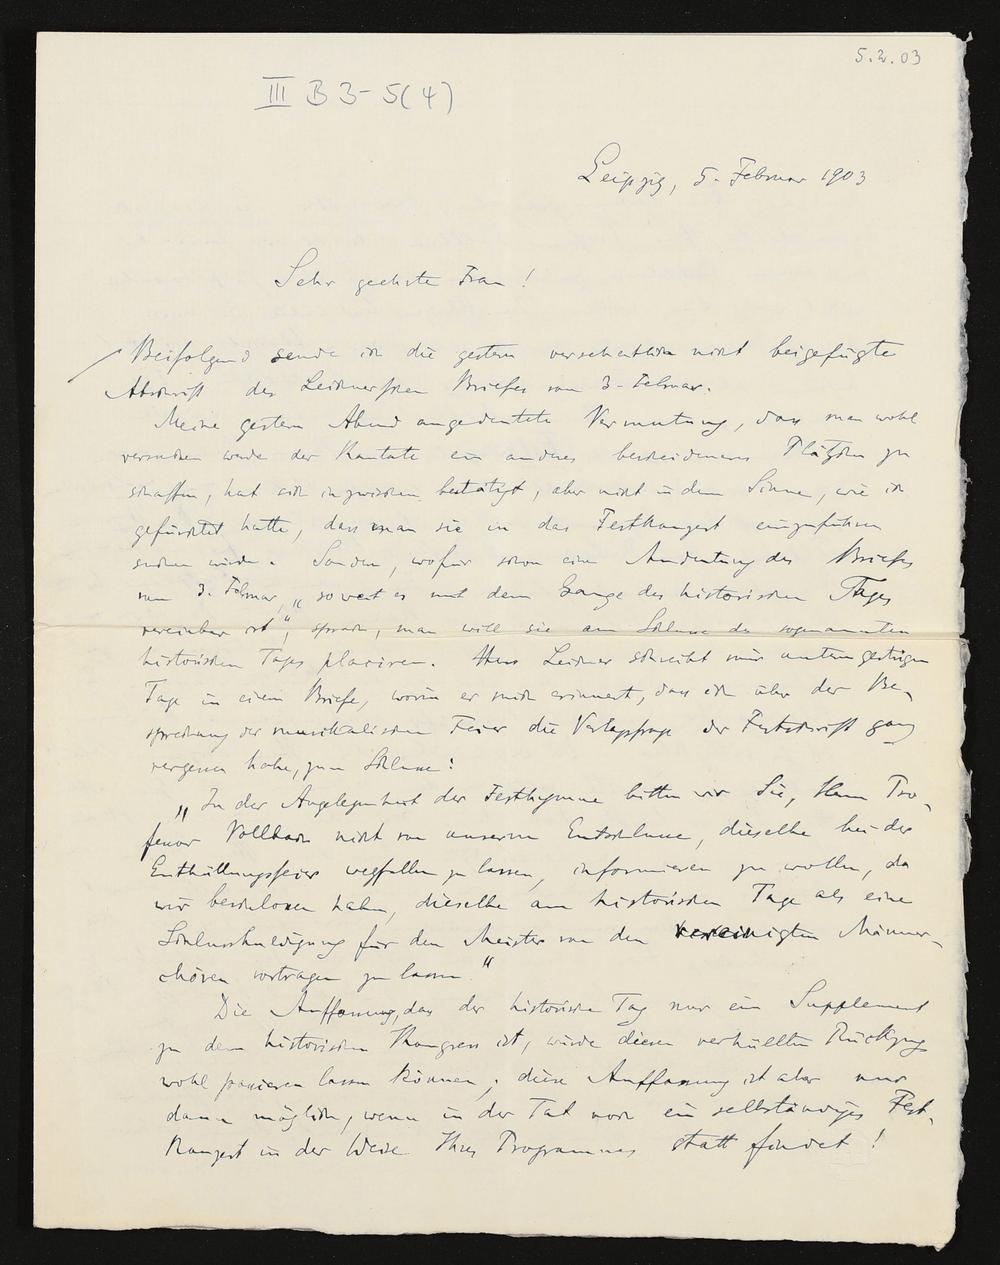 5.2.03
III B 3-5(4)
Leipzig, 5. Februar 1903
Sehr geehrte Frau!
Beifolgend sende ich die gestern versehentlich nicht beigefügte
Abschrift des Leichnerschen Briefes vom 3. Februar.
Meine gestern Abend angedeutete Vermutung, dass man wohl
versuchen werde der Kantate ein anderes bescheideneres Plätzchen zu
schaffen, hat sich inzwischen bestätigt, aber nicht in dem Sinne, wie ich
gefürchtet hatte, dass man sie in das Festkonzert einzuführen
suchen würde. Sondern, wofür schon eine Andeutung des Briefes
vom 3. Februar, „soweit es mit dem Gange des historischen Tages
vereinbar ist“, sprach, man will sie am Schlusse des sogenannten
historischen Tages placiren. Herr Leichner schreibt mir unterm gestrigen
Tage in einem Briefe, worin er mich erinnert, dass ich über der Be-
sprechung der musikalischen Feier die Verlagsfrage der Festschrift ganz
vergessen habe, zum Schlusse:
„In der Angelegenheit der Festhymne bitten wir Sie, Herrn Pro-
fessor Vollbach nicht von unserem Entschlusse, dieselbe bei der
Enthüllungsfeier wegfallen zu lassen, informieren zu wollen, da
wir beschlossen haben, dieselbe am historischen Tage als eine
Schlusshuldigung für den Meister von den vereinigten Männer-
chören vortragen zu lassen.“
Die Auffassung, dass der historische Tag nur ein Supplement
zu dem historischen Kongress ist, würde diesen verhüllten Rückzug
wohl passieren lassen können; diese Auffassung ist aber nur
dann möglich, wenn in der Tat noch ein selbständiges Fest-
Konzert in der Weise Ihres Programmes statt findet!